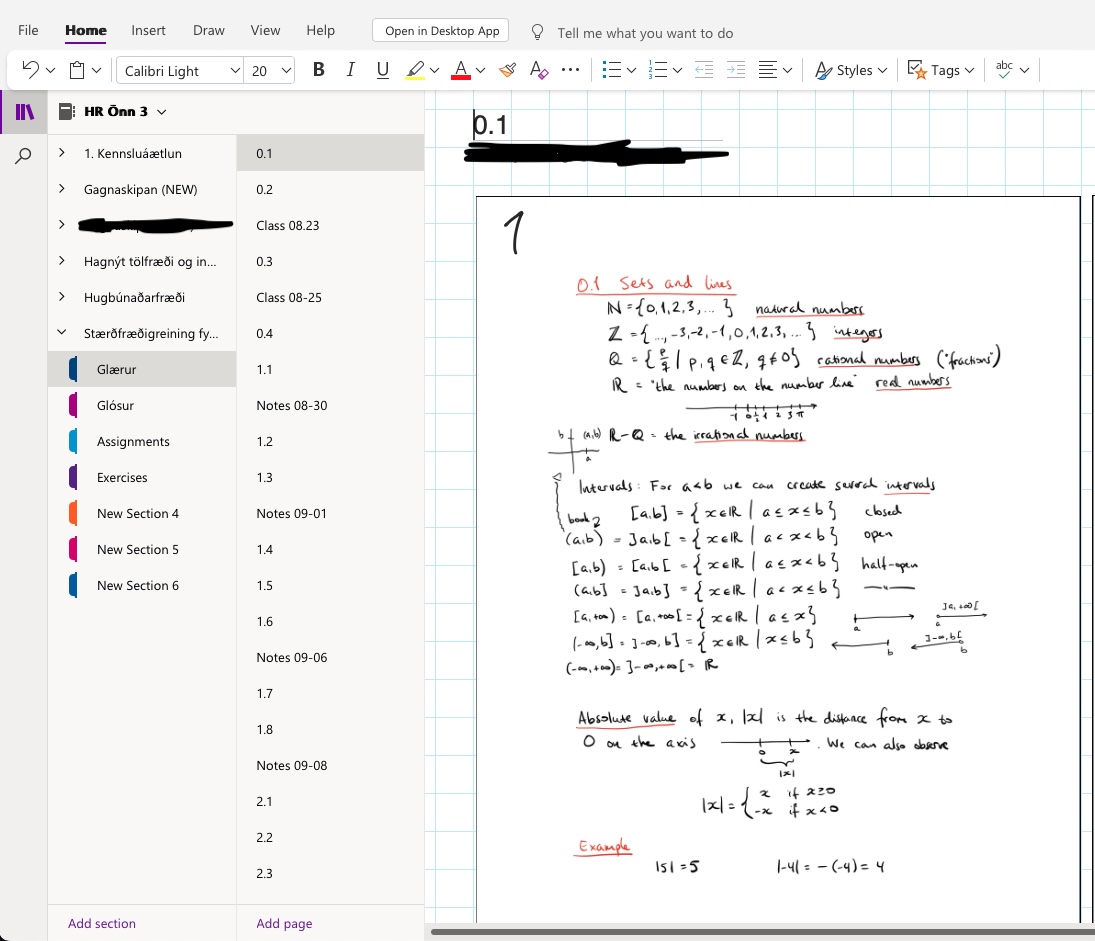 File Home Insert Draw View Help Open in Desktop App Tell me what you want to do
Calibri Light 20 B I U A A Styles Tags abc
HR Önn 3
1. Kennsluáætlun
Gagnaskipan (NEW)
Hagnýt tölfræði og in...
Hugbúnaðarfræði
Stærðfræðigreining fy...
Glærur
Glósur
Assignments
Exercises
New Section 4
New Section 5
New Section 6
Add section
0.1
0.2
Class 08.23
0.3
Class 08-25
0.4
1.1
Notes 08-30
1.2
1.3
Notes 09-01
1.4
1.5
1.6
Notes 09-06
1.7
1.8
Notes 09-08
2.1
2.2
2.3
Add page
0.1
1
0.1 Sets and lines
ℕ = {0,1,2,3,...} natural numbers
ℤ = {..., -3,-2,-1,0,1,2,3,...} integers
ℚ = {p/q | p,q ∈ ℤ, q ≠ 0} rational numbers ("fractions")
ℝ = "the numbers on the number line" real numbers
-1 0 ½ 1 2 3 π
b (a,b) ℝ-ℚ = the irrational numbers
a
Intervals: For a<b we can create several intervals
book? [a,b] = {x∈ℝ | a ≤ x ≤ b} closed
(a,b) = ]a,b[ = {x∈ℝ | a < x < b} open
[a,b) = [a,b[ = {x∈ℝ | a ≤ x < b} half-open
(a,b] = ]a,b] = {x∈ℝ | a < x ≤ b} —"—
[a,+∞) = [a,+∞[ = {x∈ℝ | a ≤ x} a ]a,+∞[ a
(-∞,b] = ]-∞,b] = {x∈ℝ | x ≤ b} b ]-∞,b[ b
(-∞,+∞) = ]-∞,+∞[ = ℝ
Absolute value of x, |x| is the distance from x to
0 on the axis 0 x . We can also observe
|x|
|x| = { x if x≥0
-x if x<0
Example
|5| = 5 |-4| = -(-4) = 4